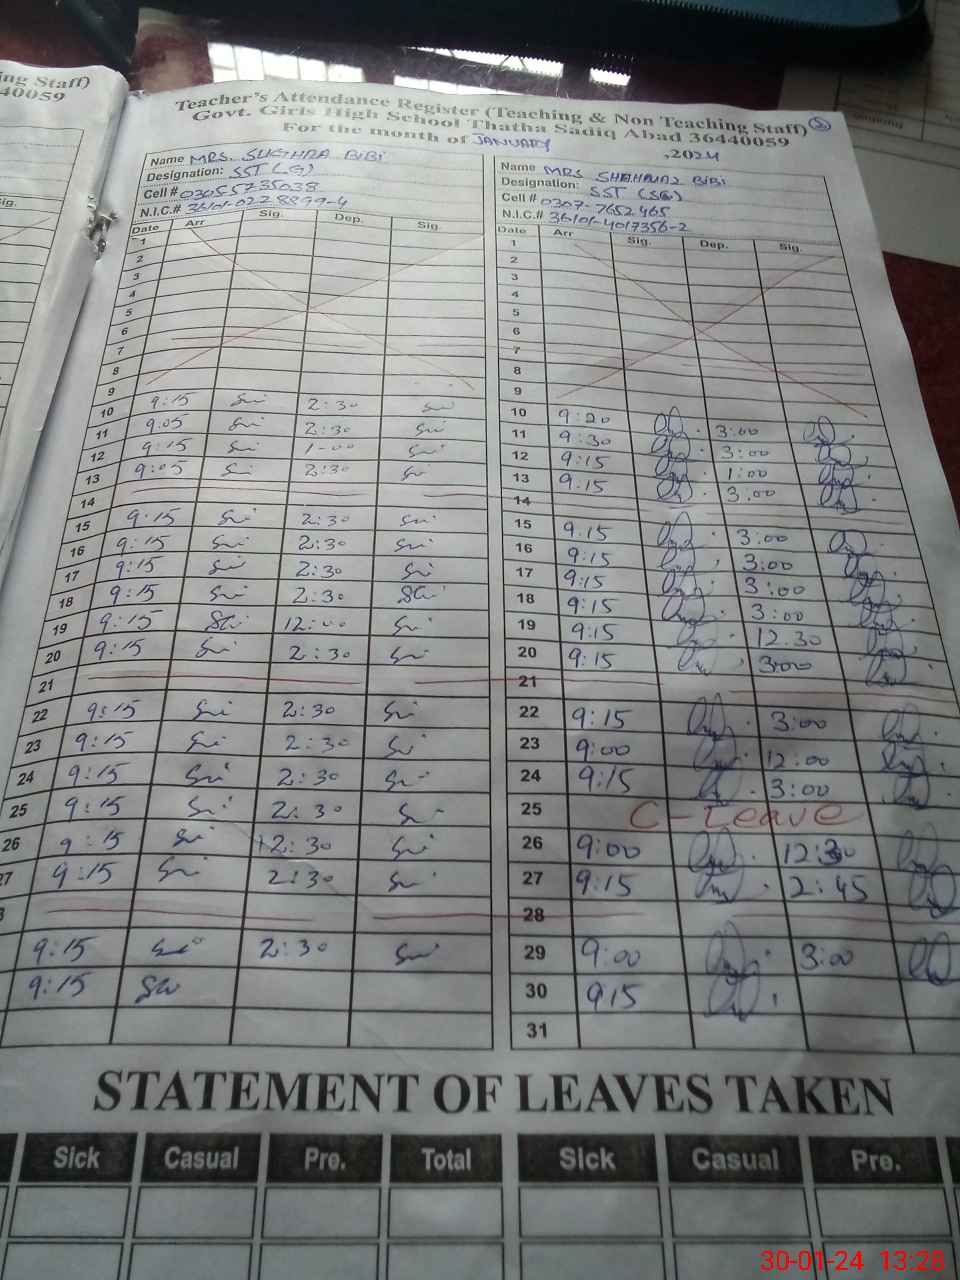 ing Staff)
40059
Teacher's Attendance Register (Teaching & Non Teaching Staff)
Govt. Girls High School Thatha Sadiq Abad 36440059
For the month of JANUARY ,2024
Name MRS. SUGHRA BIBI
Designation: SST (G)
Cell # 03055735038
N.I.C.# 36101-0228899-4
Date Arr Sig. Dep. Sig.
1
2
3
4
5
6
7
8
9
10 9:15 2:30
11 9:05 2:30
12 9:15 1-00
13 9:05 2:30
14
15 9:15 2:30
16 9:15 2:30
17 9:15 2:30
18 9:15 2:30
19 9:15 12:00
20 9:15 2:30
21
22 9:15 2:30
23 9:15 2:30
24 9:15 2:30
25 9:15 2:30
26 9:15 2:30
27 9:15 2:30
9:15 2:30
9:15
Name MRS SHAHNAZ BIBI
Designation: SST (SG)
Cell # 0307-7652465
N.I.C.# 36101-4017356-2
Date Arr Sig. Dep. Sig.
1
2
3
4
5
6
7
8
9
10 9:20 3:00
11 9:30 3:00
12 9:15 1:00
13 9:15 3:00
14
15 9:15 3:00
16 9:15 3:00
17 9:15 3:00
18 9:15 3:00
19 9:15 12.30
20 9:15 3:00
21
22 9:15 3:00
23 9:00 12:00
24 9:15 3:00
25 C-Leave
26 9:00 12:30
27 9:15 2:45
28
29 9:00 3:00
30 915
31
STATEMENT OF LEAVES TAKEN
Sick Casual Pre. Total Sick Casual Pre.
30-01-24 13:28